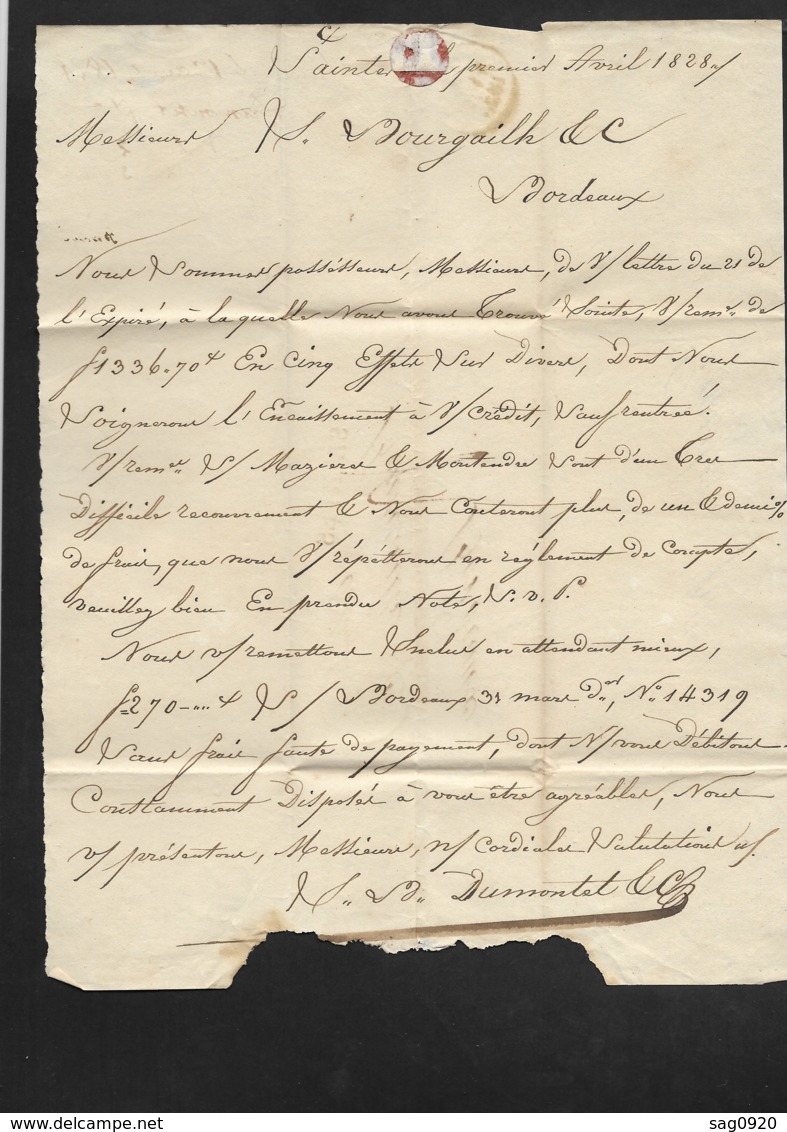 Saintes le premier Avril 1828 ./
Messieurs S. Bourgailh & C
Bordeaux
Nous Sommes possésseurs, Messieurs, de V/ lettre du 21 de
l'Expiré, à la quelle Nous avons Trouvé Jointe, V/ remse. de
f 1336.70 c En Cinq Effets Sur Divers, Dont Nous
Soignerons l'Encaissement à V/ Crédit, Sauf rentrée.
V/ remses. S/ Mazieres & Montendre Sont d'un Tres
Difficile recouvrement & Nous Couteront plus, de un & demi %
de frais, que nous V/ répétterons en réglement de Compte,
veuillez bien En prendre Note, S. v. P.
Nous v/ remettons Inclus en attendant mieux,
f 270 - ,, c S/ Bordeaux 31 mars Der, No. 14319
Sans frais faute de payement, dont N/ vous Débitons
Constamment Disposés à vous être agréables, Nous
v/ présentons, Messieurs, n/ Cordiales Salutations ./.
S. B. Dumontet & C
sag0920